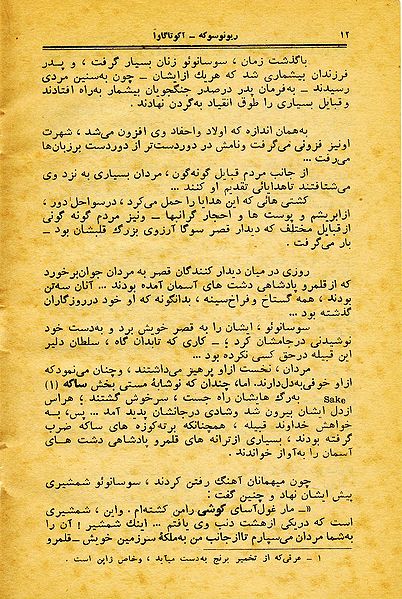 ۱۲
ریونوسوکه ــ آکوتاگاوا
باگذشت زمان ، سوسانوئو زنان بسیار گرفت ، و پدر
فرزندان بیشماری شد که هریك ازایشان ــ چون به‌سنین مردی
رسیدند ــ به‌فرمان پدر درصدر جنگجویان بیشمار به‌راه افتادند
وقبایل بسیاری را طوق انقیاد به‌گردن نهادند .
به‌همان اندازه که اولاد واحفاد وی افزون می‌شد ، شهرت
اونیز فزونی می‌گرفت ونامش در دوردست‌تر از دوردست برزبان‌ها
می‌رفت ...
از جانب مردم قبایل گونه‌گون ، مردان بسیاری به نزد وی
می‌شتافتند تاهدایائی تقدیم او کنند ...
کشتی هائی که این هدایا را حمل می‌کرد ، درسواحل دور ،
ازابریشم و پوست ها و احجار گرانبها ــ ونیز مردم گونه گونی
ازقبایل مختلف که دیدار قصر سوگا آرزوی بزرگ قلبشان بود ــ
بار می‌گرفت .
روزی در میان دیدار کنندگان قصر به مردان جوان‌برخورد
که ازقلمرو پادشاهی دشت های آسمان آمده بودند ... آنان سه‌تن
بودند ، همه گستاخ وفراخ‌سینه ، بدانگونه که او خود درروزگاران
گذشته بود ...
سوسانوئو ، ایشان را به قصر خویش برد و به‌دست خود
نوشیدنی درجامشان کرد ؛ ــ کاری که تابدان گاه ، سلطان دلیر
این قبیله درحق کسی نکرده بود ...
مردان ، نخست ازو پرهیز می‌داشتند ، وچنان می‌نمودکه
ازو خوفی‌به‌دل‌دارند. اما، چندان که نوشابهٔ مستی بخش ساکه (۱)
Sake به‌رگ هایشان راه جست ، سرخوش گشتند ؛ هراس
ازدل ایشان بیرون شد وشادی درجانشان پدید آمد ... پس، به
خواهش خداوند قبیله ، همچنانکه برته‌کوزه های ساکه ضرب
گرفته بودند ، بسیاری ازترانه های قلمرو پادشاهی دشت های
آسمان را به‌آواز خواندند .
چون میهمانان آهنگ رفتن کردند ، سوسانوئو شمشیری
پیش ایشان نهاد و چنین گفت :
«ــ مار غول‌آسای گوشی رامن کشته‌ام . واین ، شمشیری
است که دریکی ازهشت دنب وی یافتم ... اینك شمشیر ! آن را
به‌شما مردان می‌سپارم تاازجانب من به‌ملکهٔ سرزمین خویش ــ قلمرو
۱ ــ عرقی‌که از تخمیر برنج به‌دست میآید ، وخاص ژاپن است .